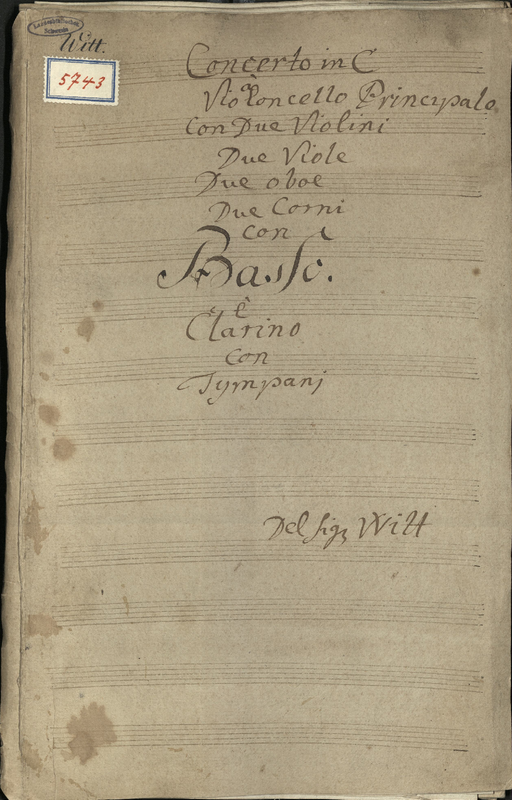 Witt.
5743
Concerto in C
à
Violoncello Principalo
Con Due Violini
Due Viole
Due oboe
Due Corni
con
Basso.
è
Clarino
con
Tympani
Del Sigr Witt